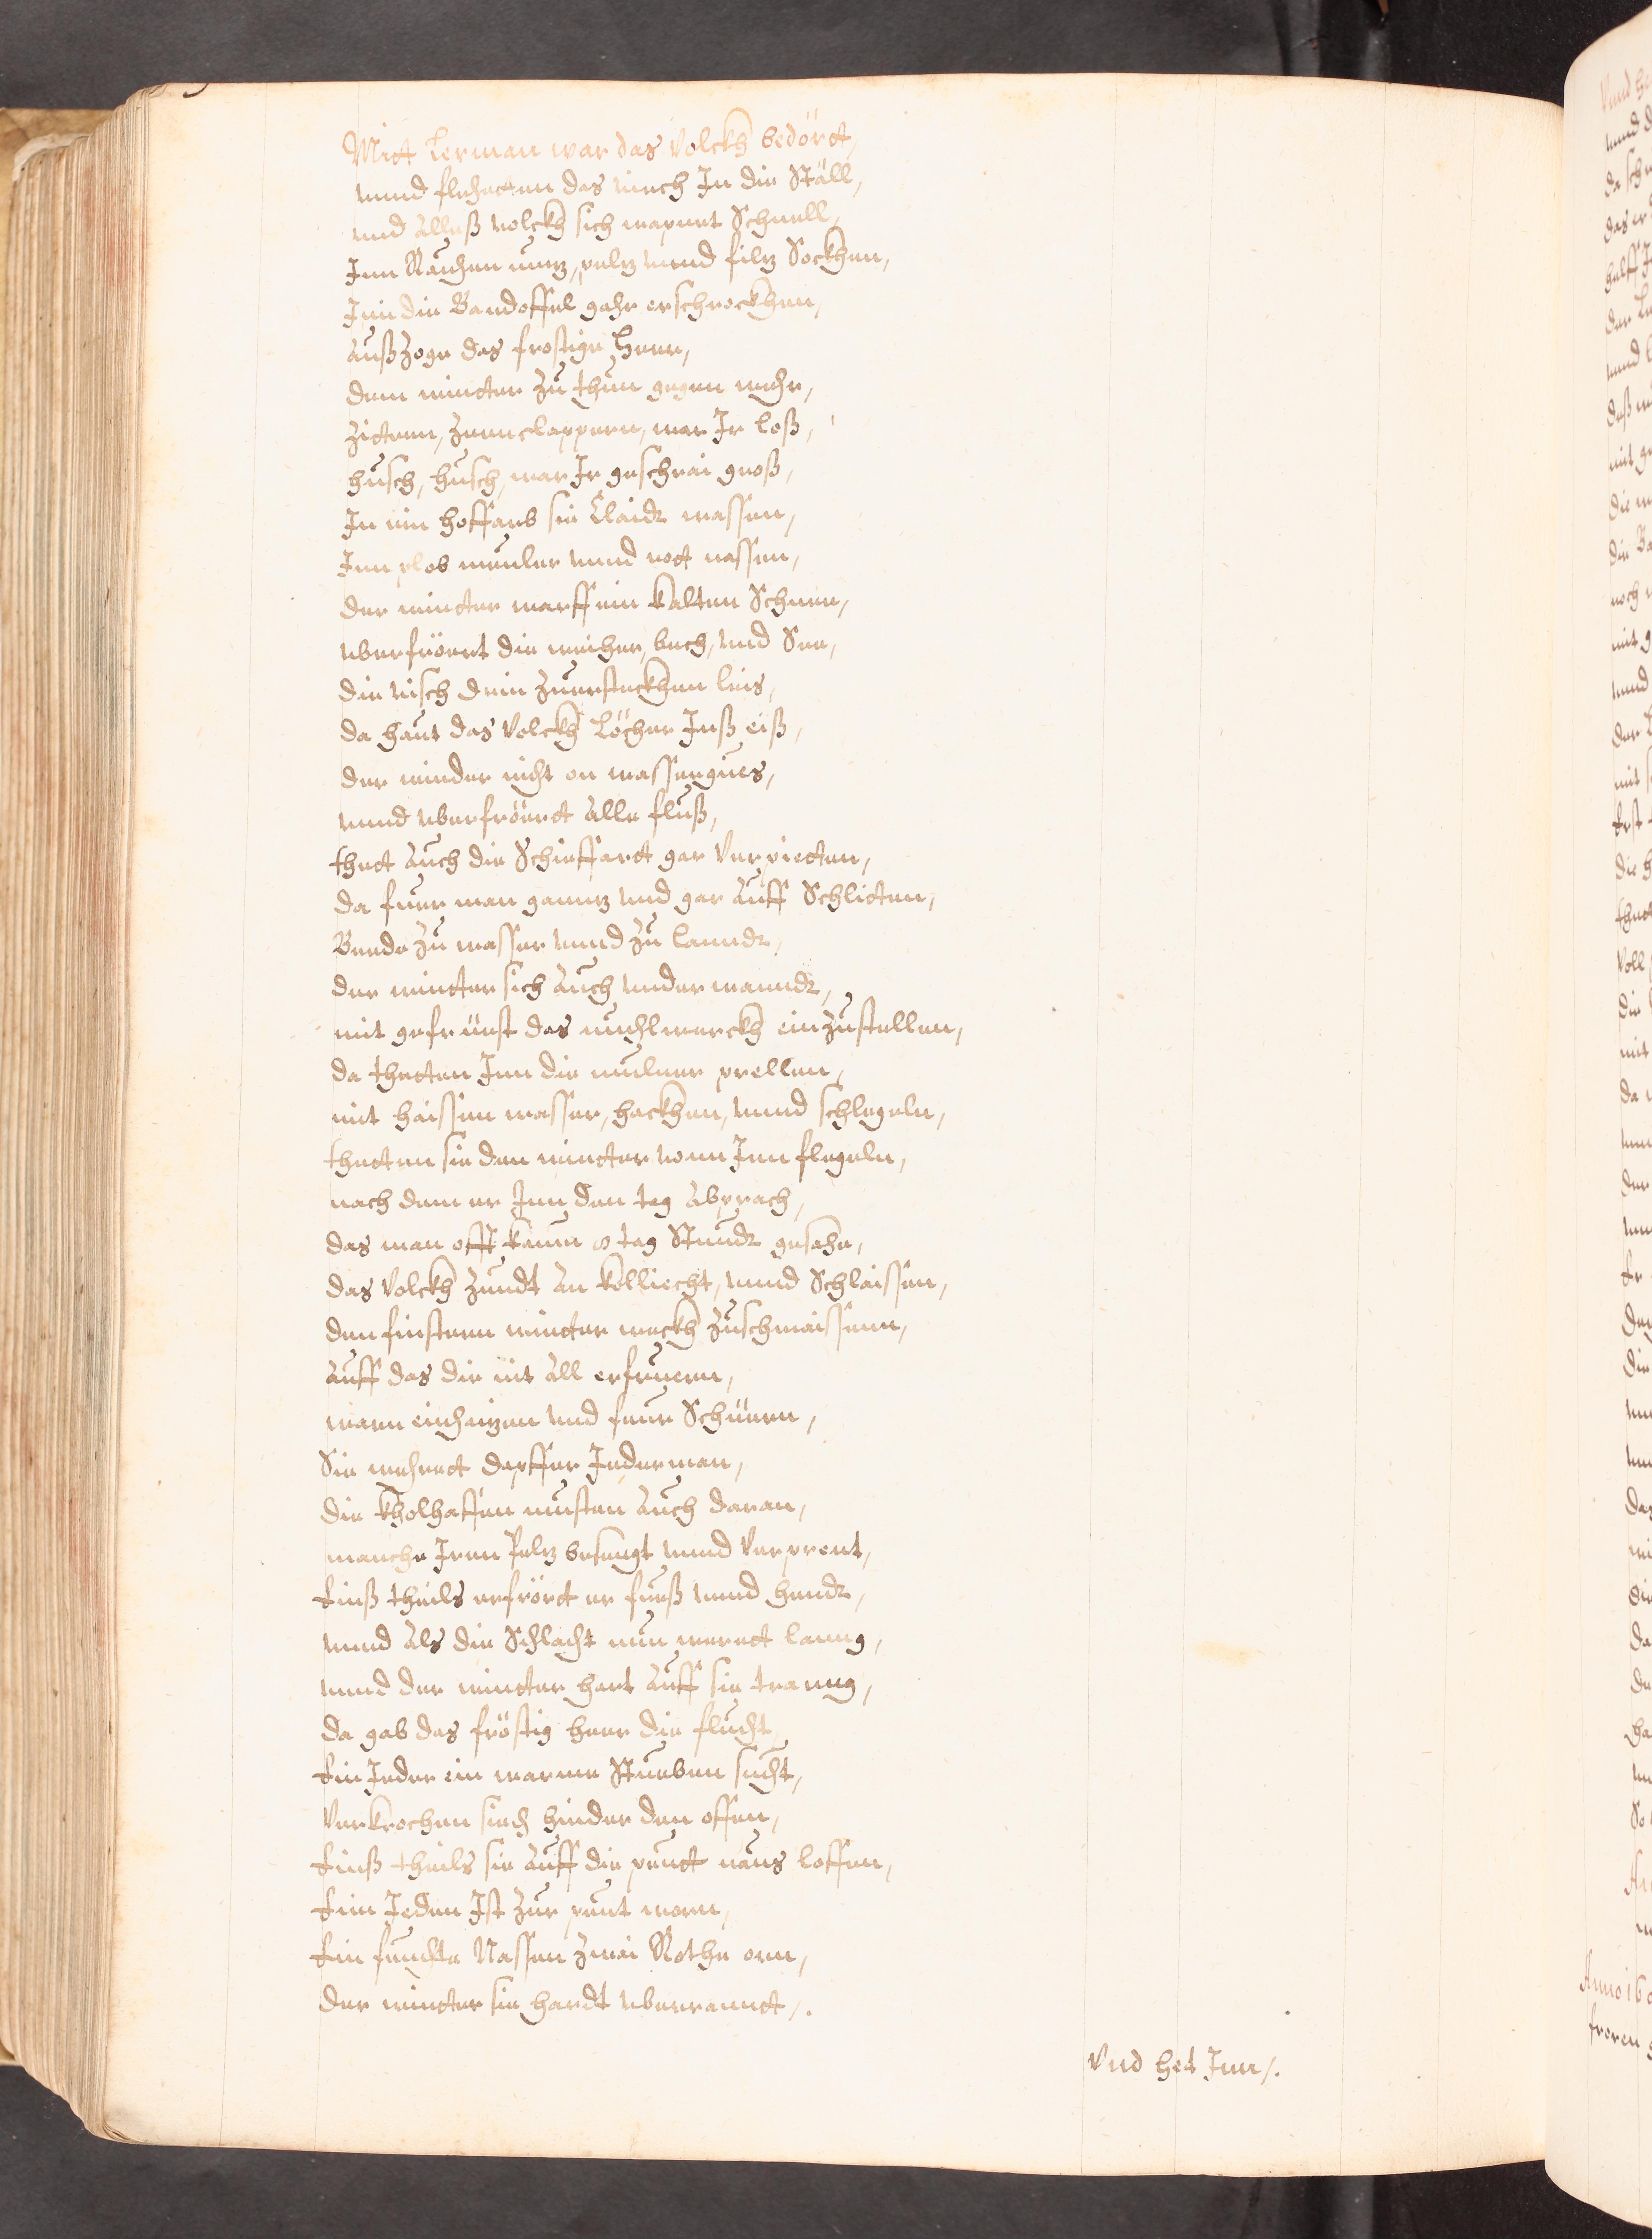 Mitt Lerman war das Volckh bedört,
vnnd flehetten das viech In die Ställ,
vnd alleß volckh sich wapnet Schnell,
Inn Rauhen wentz, peltz vnnd filtz Sockhen,
Inn die Bandoffel gahr erschrockhen,
Außzoge das frostige Heer,
dem wintter zu thun gegen wehr,
Zittern, Zeenclappern, war Ir loß,
husch, husch, war Ir geschrai groß,
In ein hoffarb sie klaidt wassen,
Inn plob meuler vnnd rott nassen,
der wintter warff ein kalten Schnee,
vberfröert die weiher, bech, vnd See,
die visch drin Zuersteckhen leis,
da haut das Volckh Löcher Inß eiß,
der winder nicht on wassergues,
vnnd vberfröertt alle fluß,
thett auch die Schieffartt gar Verpietten,
da fuer man ganntz vnd gar auff Schlitten,
Beede zu wasser vnnd zu lanndt,
der wintter sich auch vnder wanndt,
mit gefrüest das muehlwerckh einzustellen,
da thetten Inn die mulner prellen,
mit haissen wasser, hackhen, vnnd schlegeln,
thetten sie den wintter vonn Inn flegeln,
nach dem er Inn den tag abprach,
das man offt kaum 8 tag Stundt gesahe,
das Volckh Zundt an kolliecht, vnnd Schlaissen,
den finstern wintter weckh Zuschmaissenn,
auff das die nit all erfruern,
warn einheitzen vnd feur Schüern,
Sie wehrett dapffer Jederman,
die kholhaffen musten auch daran,
manche Iren Peltz besengt vnnd Verprent,
Einß theils erfrört er fueß vnnd hendt,
vnnd als die Schlacht nun werett lanng,
vnnd der wintter hart auff sie tranng,
da gab das fröstig heer die flucht,
Ein Jeder ein warme Stueben sucht,
Verkrochen sich hinder den offen,
Einß theils sie auff die peutt naus loffen,
Eim Jeden Ist zur peut worn,
Ein feuchte Nassen zwai Rothe orn,
der wintter sie hardt vberranntt /.
Vnd het Inn /.